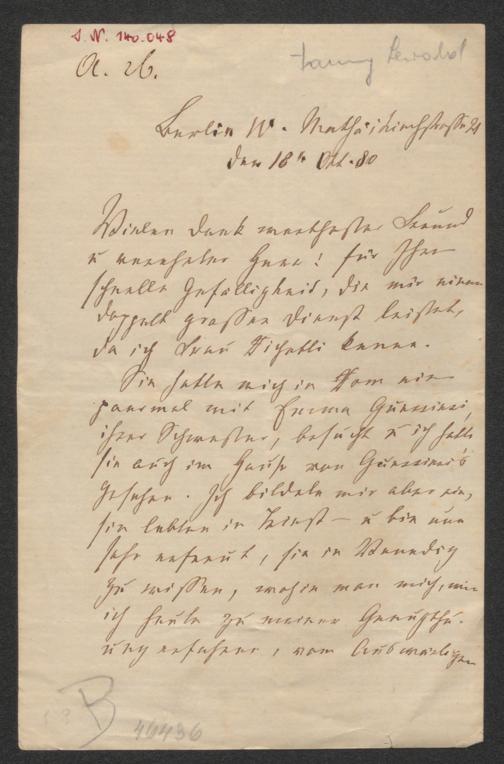 I. N. 140.048
A. 26.
Fanny Lewald
Berlin W. Mathäikirchstraße 21
den 18t Okt. 80
Vielen Dank werthester Freund
u verehrter Herr! für Ihre
schnelle Gefälligkeit, die mir einen
doppelt grossen Dienst leistet,
da ich Frau kenne.
Sie hatte mich in Rom ein
paarmal mit Emma
ihrer Schwester, besucht u ich hatte
sie auch im Hause von
gesehen. Ich bildete mir aber ein,
sie lebten in Triest – u bin nun
sehr erfreut, sie in Venedig
zu wissen, wohin man mich, wie
ich heute zu meiner Genugthu-
ung erfahre, vom Auswärtigen
B
46436